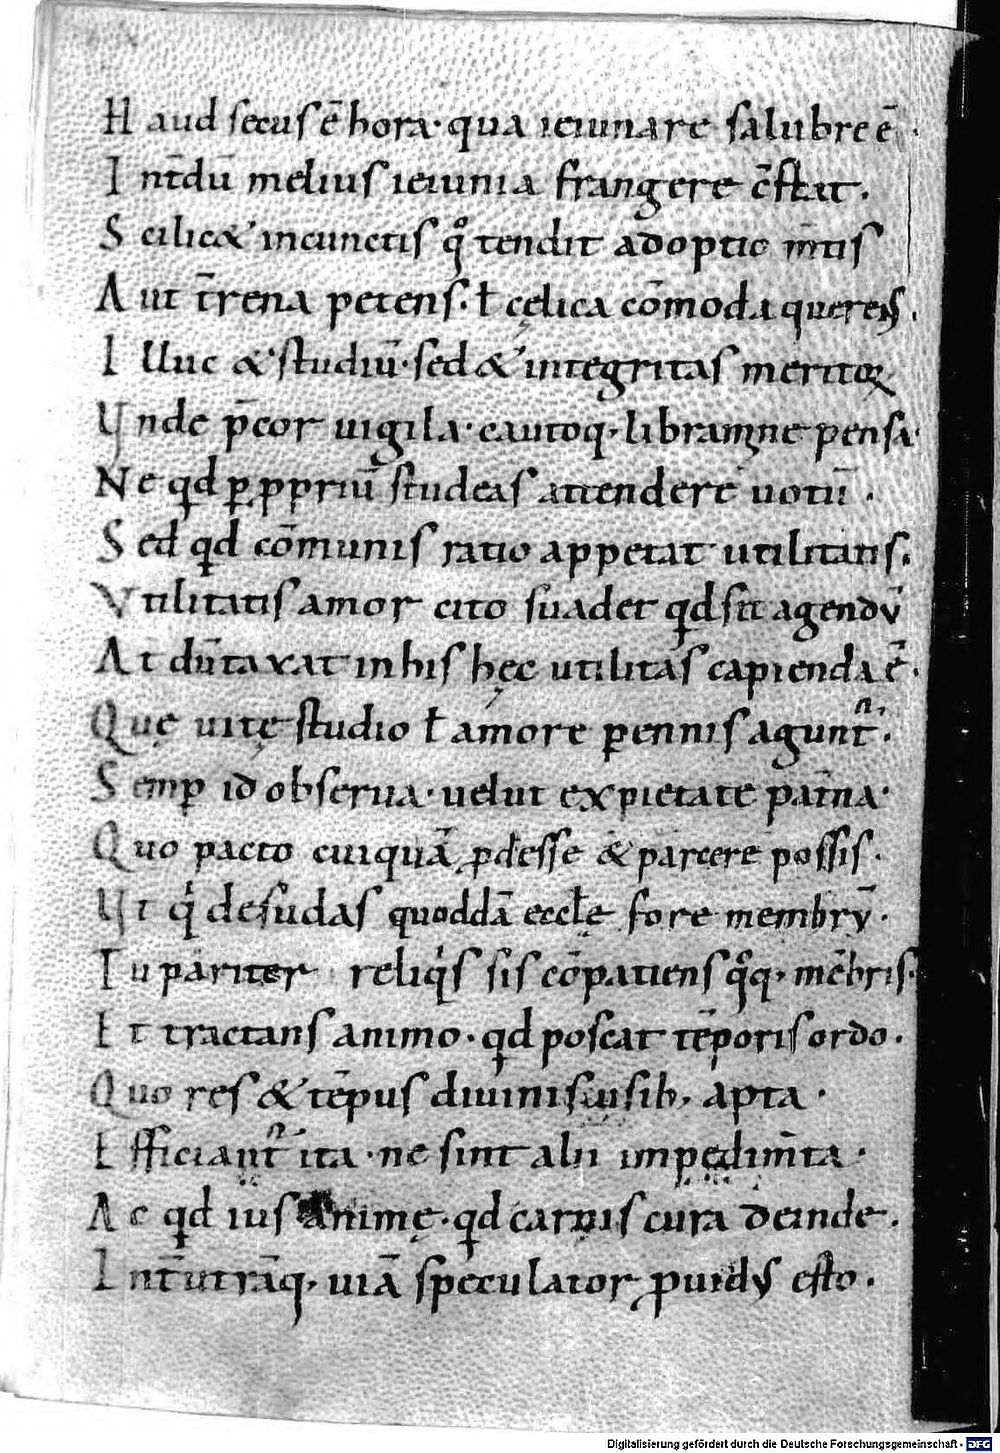 Haud secus ē hora· qua ieiunare salubre ē·
Int̄dū melius ieiunia frangere c̄stat.
Scilic& incunctis qͦ tendit adoptio m̄tis
Aut t̄rena petens· ł cęlica cōmoda querens.
Illuc & studiū· sed & integritas meritoꝝ
Unde p̄cor uigila· cautoq; libramine pensa·
Ne qd ꝑ ꝓpriū studeas attendere uotū·
Sed qd cōmunis ratio appetat utilitatis·
Vtilitatis amor cito suadet qd sit agendū
At dūtaxat in his hęc utilitas capienda ē·
Quę uitę studio ł amore ꝑennis agunt᷑.
Semꝑ id obserua· uelut ex pietate pat̄na·
Quo pacto cuiquā ꝓdesse & parcere possis·
Ut qͥ desudas quoddā eccłę fore membrū·
Tu pariter reliqͥs sis cōpatiens qͥq; mēbris·
Et tractans animo· qd poscat tēporis ordo.
Quo res & tēpus diuinis usib; apta·
Efficiant᷑ ita· ne sint alii impedim̄ta·
Ac qd ius animę· qd carnis cura deinde.
Int̄ utrāq; uiā speculator ꝓuidus esto.
Digitalisierung gefördert durch die Deutsche Forschungsgemeinschaft - DFG